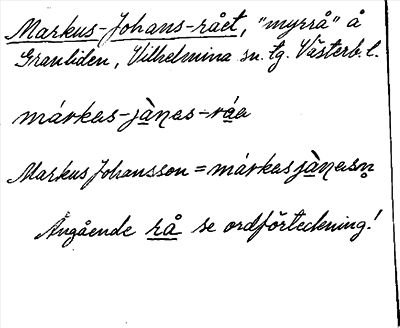 Markus-Johans-rået, "myrrå" å
Granliden, Vilhelmina sn. tg. Västerb. l.
márkas-jà̱nas-rá̱a
Markus Johansson = márkasjà̱nasn̥
Angående rå se ordförteckning!